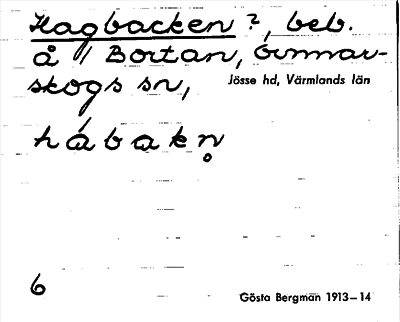 Hagbacken ?, beb.
å Bortan, Gunnar-
skogs sn,
Jösse hd, Värmlands län
hábakn̥
6
Gösta Bergman 1913–14